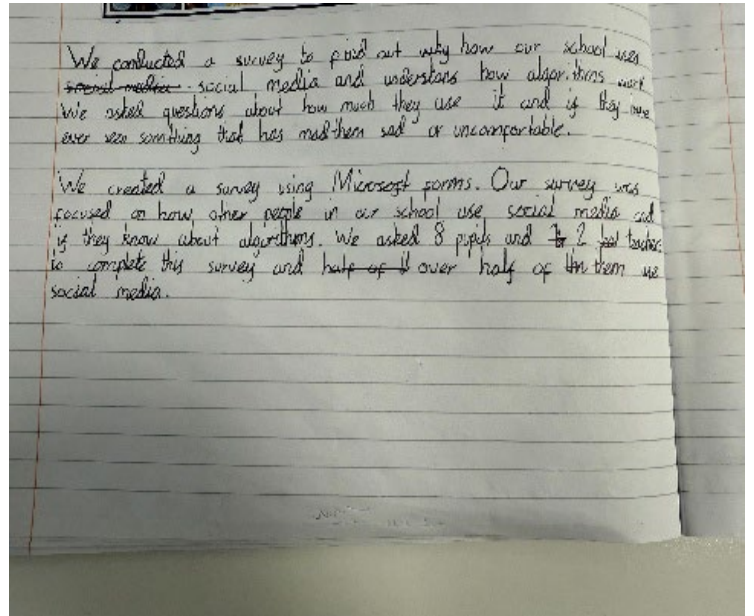 We conducted a survey to find out why how our school uses
social media social media and understans how algorithms work
We asked questions about how much they use it and if they have
ever seen somthing that has mad them sad or uncomfortable.
We created a survey using Microsoft forms. Our survey was
focused on how other people in our school use social media and
if they know about algorithms. We asked 8 pupils and 2 teachers
to complete this survey and half of over half of them use
social media.